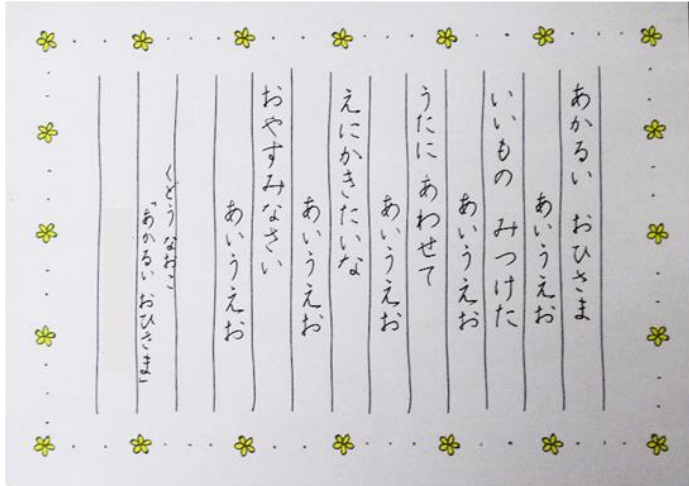 あかるい おひさま
あいうえお
いいもの みつけた
あいうえお
うたに あわせて
あいうえお
えにかきたいな
あいうえお
おやすみなさい
あいうえお
くどうなおこ
「あかるい おひさま」